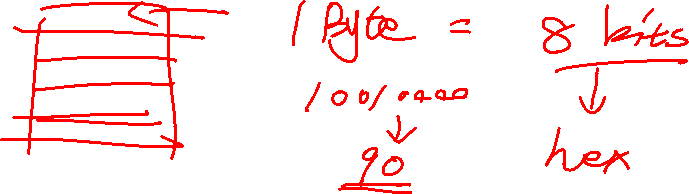 1 Byte = 8 bits
10010000
90
hex